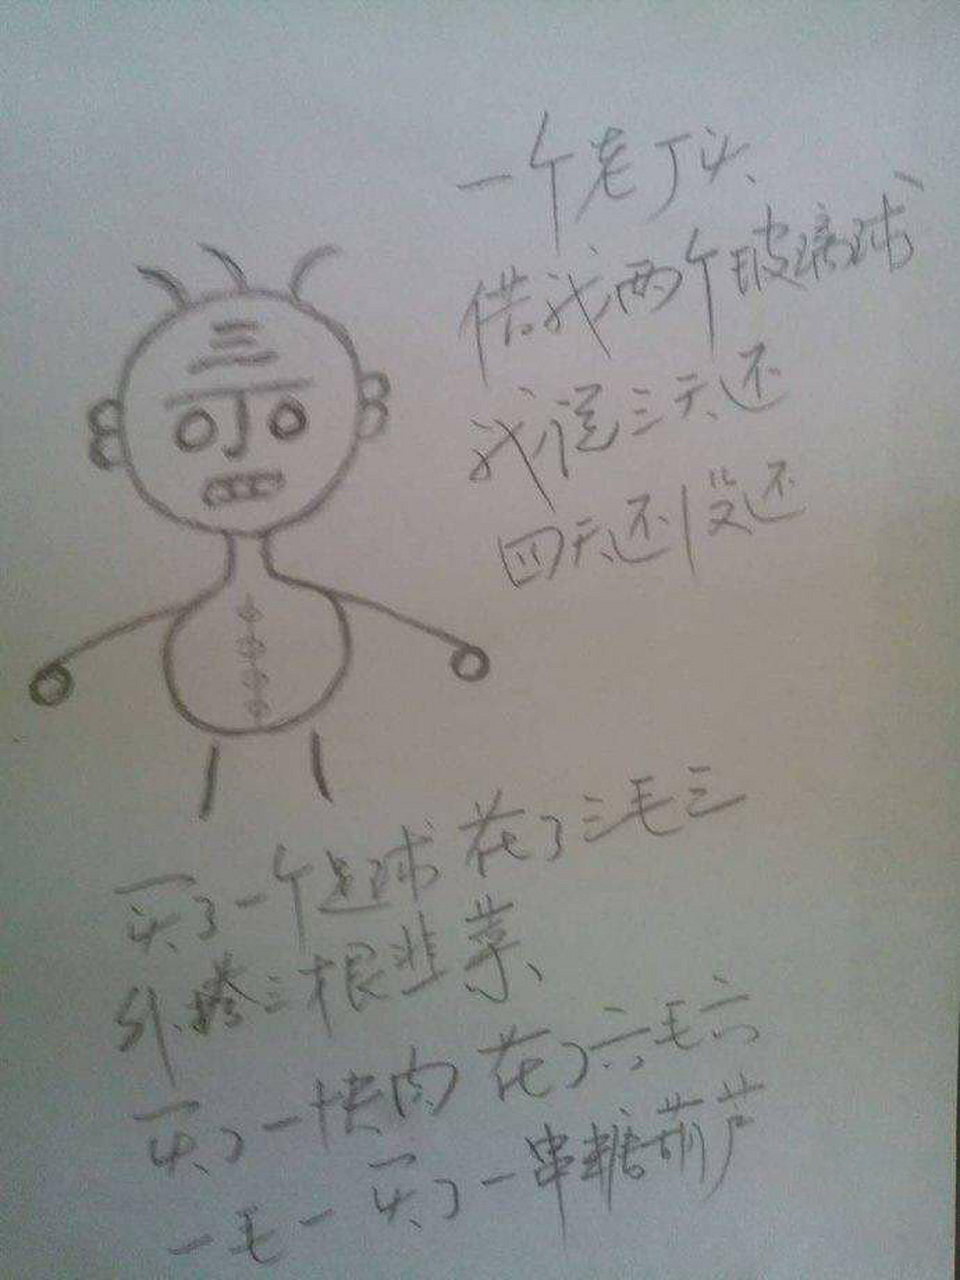 一个老丁头
借我两个玻璃球
我说三天还
四天还没还
买了一个足球花了三毛三
外搭三根韭菜
买了一块肉花了六毛六
一毛一买了一串糖葫芦